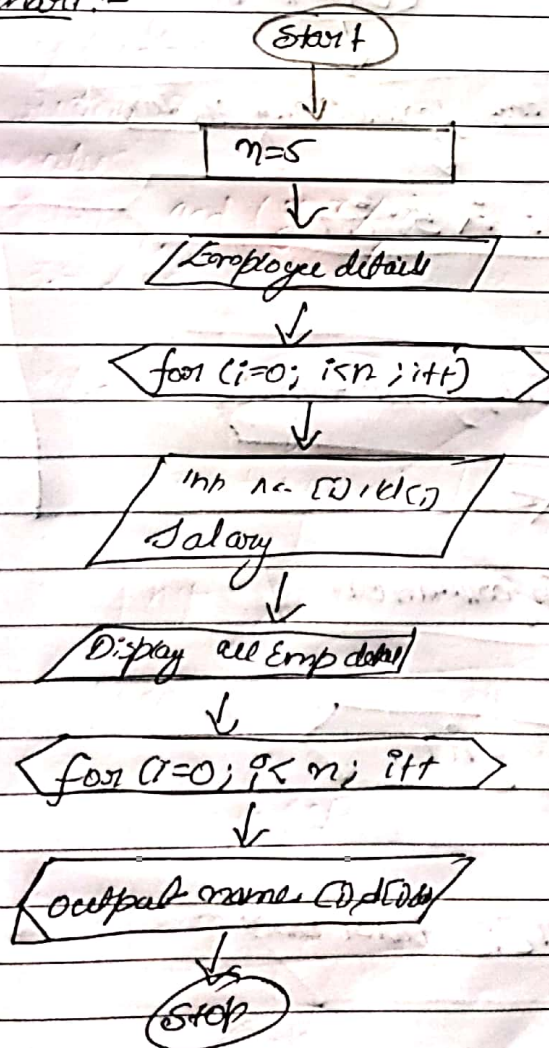 Start
n=5
Employee details
for (i=0; i<n ; i++)
[i], id[i]
Salary
Display all Emp detail
for (i=0; i< n; i++
output name [i], id[i]
Stop